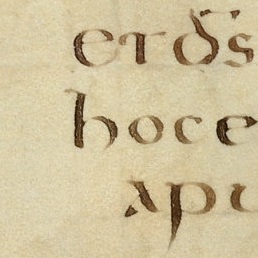 et d̄s
hoc e
apu